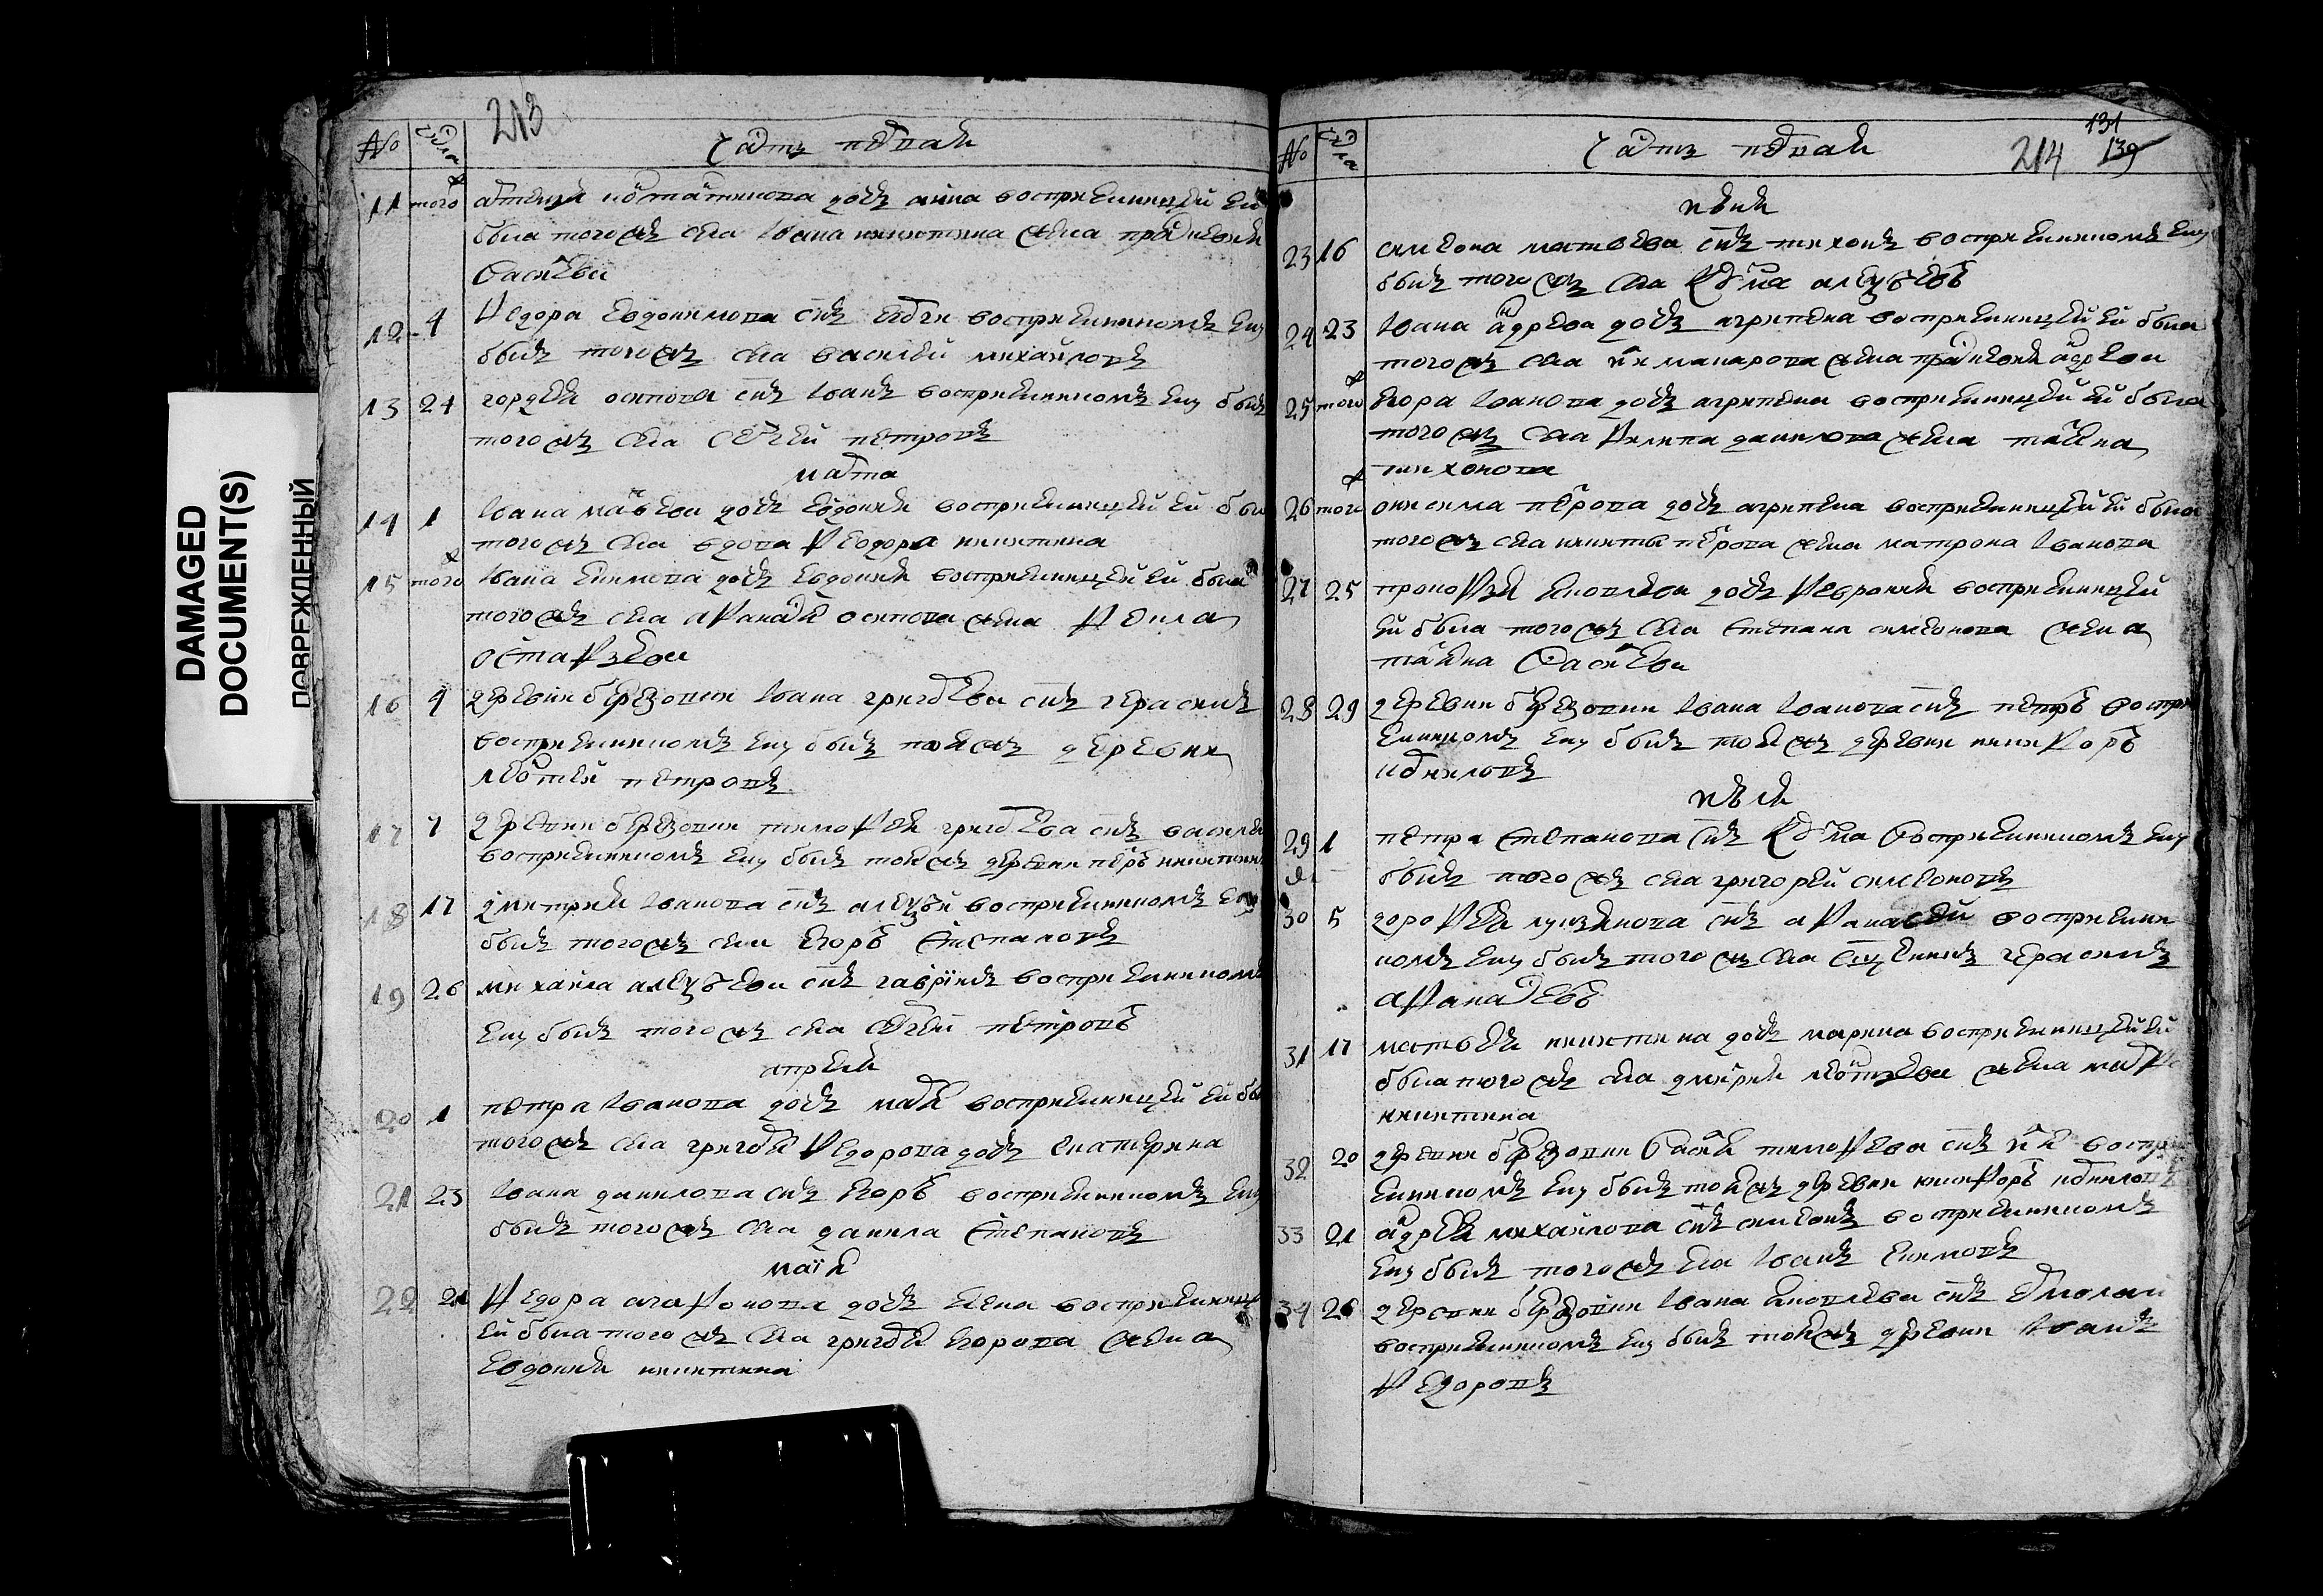 DAMAGED
DOCUMENT(S)
ПОВРЕЖДЕННЫЙ
213
№ числа часть первая
11 того ж дочь анна восприемницей ей
была того ж села Ивана никитина жена прасковья
васильева
12 4 Федора Евдокимова сын восприемником ему
был того ж села василей михайлов
13 24 гордея осипова сын Иван восприемником ему был
того ж села сергей петров
марта
14 1 Ивана дочь Евдокия восприемницей ей был
того ж села вдова Федора никитина
15 того ж Ивана Екимова дочь Евдокия восприемницей ей была
того ж села афанасья осипова жена Фекла
остафьева
16 4 деревни березовки Ивана григорьева сын герасим
восприемником ему был той ж деревни
леонтей петров
17 7 деревни березовки тимофея григорьева сын василей
восприемником ему был той ж деревни петр никитин
18 17 дмитрия Иванова сын алексей восприемником ему
был того ж села Егор степанов
19 26 михаила алексеева сын гаврил восприемником
ему был того ж села сергей петров
апреля
20 1 петра Иванова дочь марья восприемницей ей бы
того ж села григорья Федорова дочь екатерина
21 23 Ивана данилова сын Егор восприемником ему
был того ж села данила степанов
маия
22 21 Федора агафонова дочь елена восприемнице
ей была того ж села григорья Егорова жена
Евдокия никитина
131
214 139
№ числа часть первая
июня
23 16 симеона матвеева сын тихон восприемником ему
был того ж села козма алексеев
24 23 Ивана андреева дочь агрипена восприемницей ей была
того ж села макарова жена прасковья андреева
25 того ж Егора Иванова дочь агрипена восприемницей ей была
того ж села Филипа данилова жена татьяна
тихонова
26 того ж онисима петрова дочь агрипена восприемницей ей была
того ж села никиты петрова жена матрона Иванова
27 25 прокофья дочь Феврония восприемницей
ей была того ж села степана симеонова жена
татьяна васильева
28 29 деревни березовки Ивана Иванова сын петр воспри
емником ему был той ж деревни никифор
июля
29 1 петра степанова сын козма восприемником ему
был того ж села григорей симеонов
30 5 дорофея сын афанасей восприемни
ком ему был того ж села священник герасим
афанасьев
31 17 матвея никитина дочь марина восприемницей ей
была того ж села дмитрия леонтьева жена
никитина
32 20 деревни березовки василья тимофеева сын илья воспри
емником ему был той ж деревни никифор
33 21 андрея михайлова сын симеон восприемником
ему был того ж села Иван Екимов
34 26 деревни березовки Ивана сын Ермолай
восприемником ему был той ж деревни Иван
Федоров